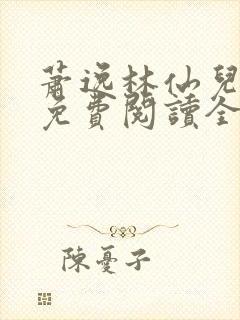 蕭逸林仙兒
免費閱讀全
陳憂子